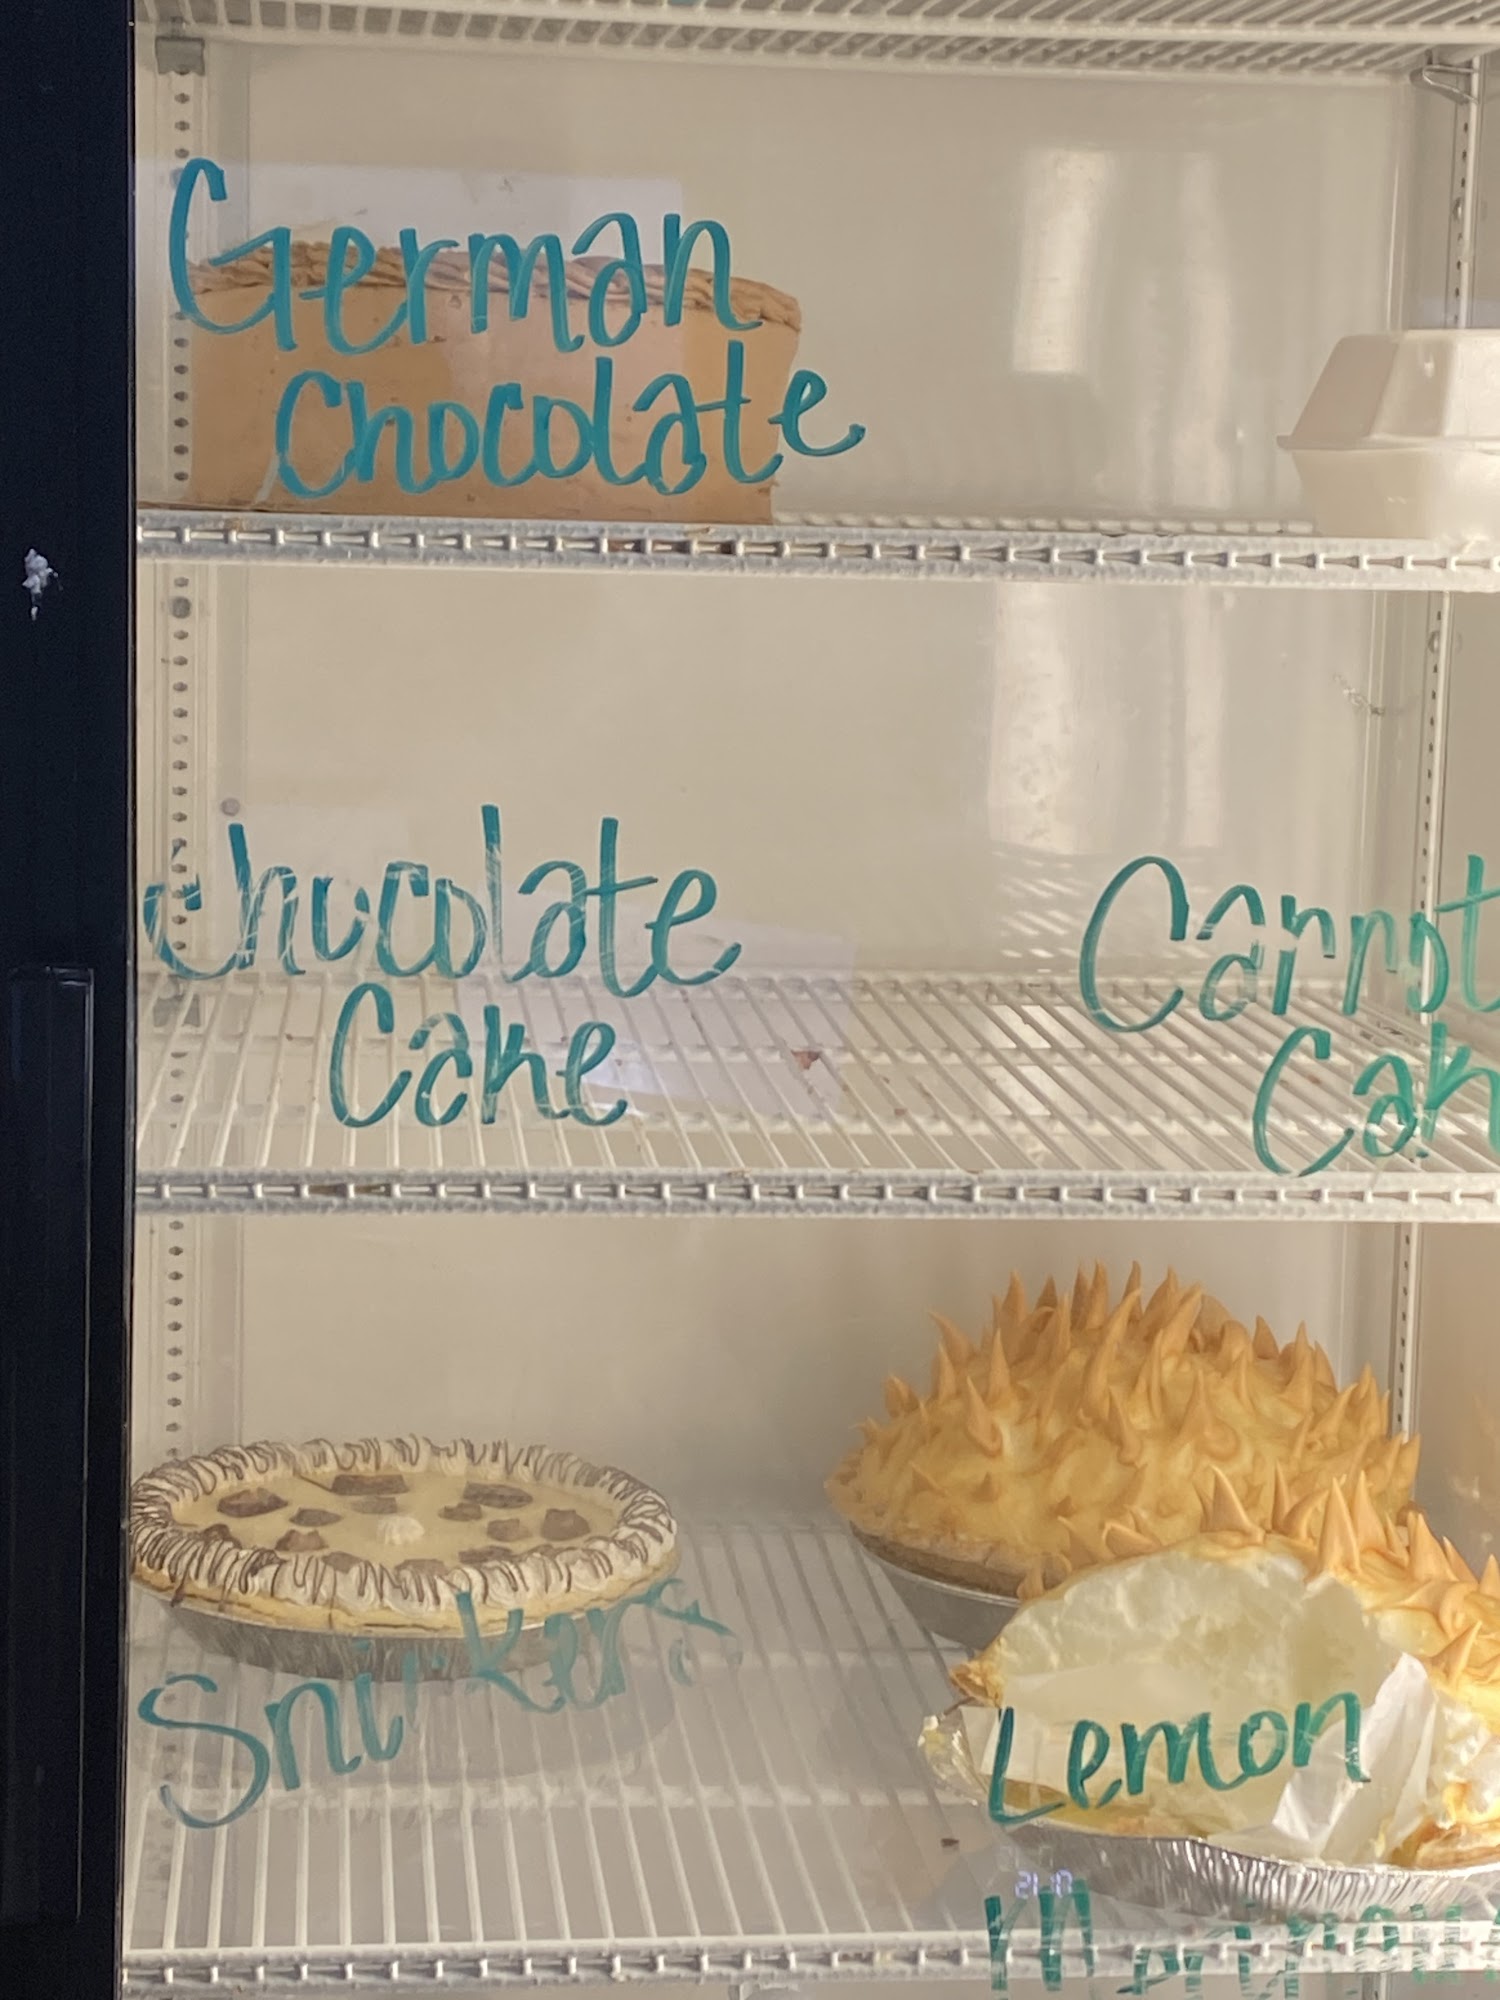 German
Chocolate
Chocolate
Cake
Carrot
Cak
Snickers
Lemon